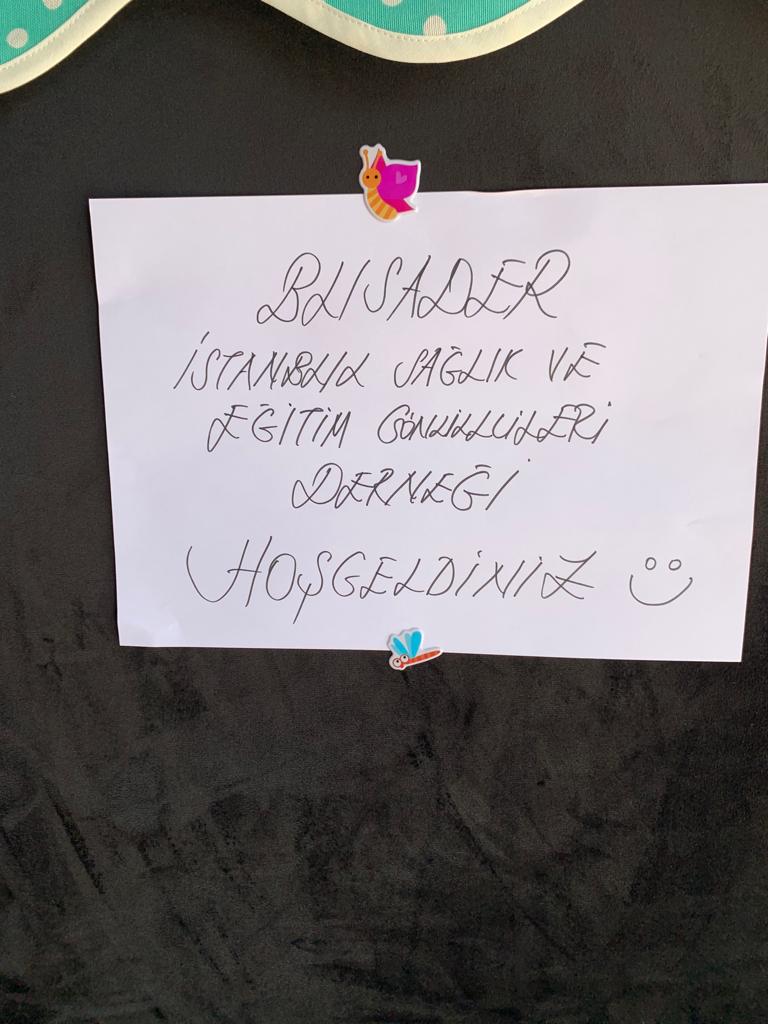 BUSADER
İSTANBUL SAĞLIK VE
EĞİTİM GÖNÜLLÜLERİ
DERNEĞİ
HOŞGELDİNİZ